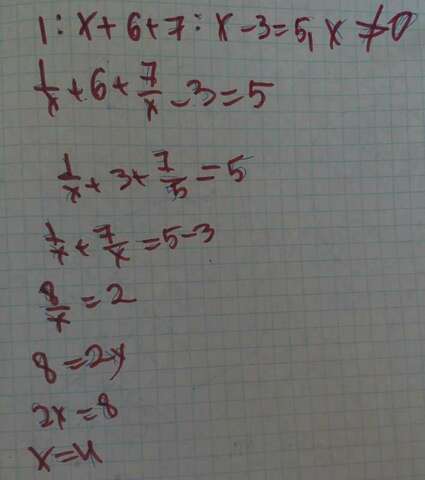 1 : x + 6 + 7 : x - 3 = 5, x ≠ 0
1/x + 6 + 7/x - 3 = 5
1/x + 3 + 7/5 = 5
1/x + 7/x = 5 - 3
8/x = 2
8 = 2x
2x = 8
x = 4